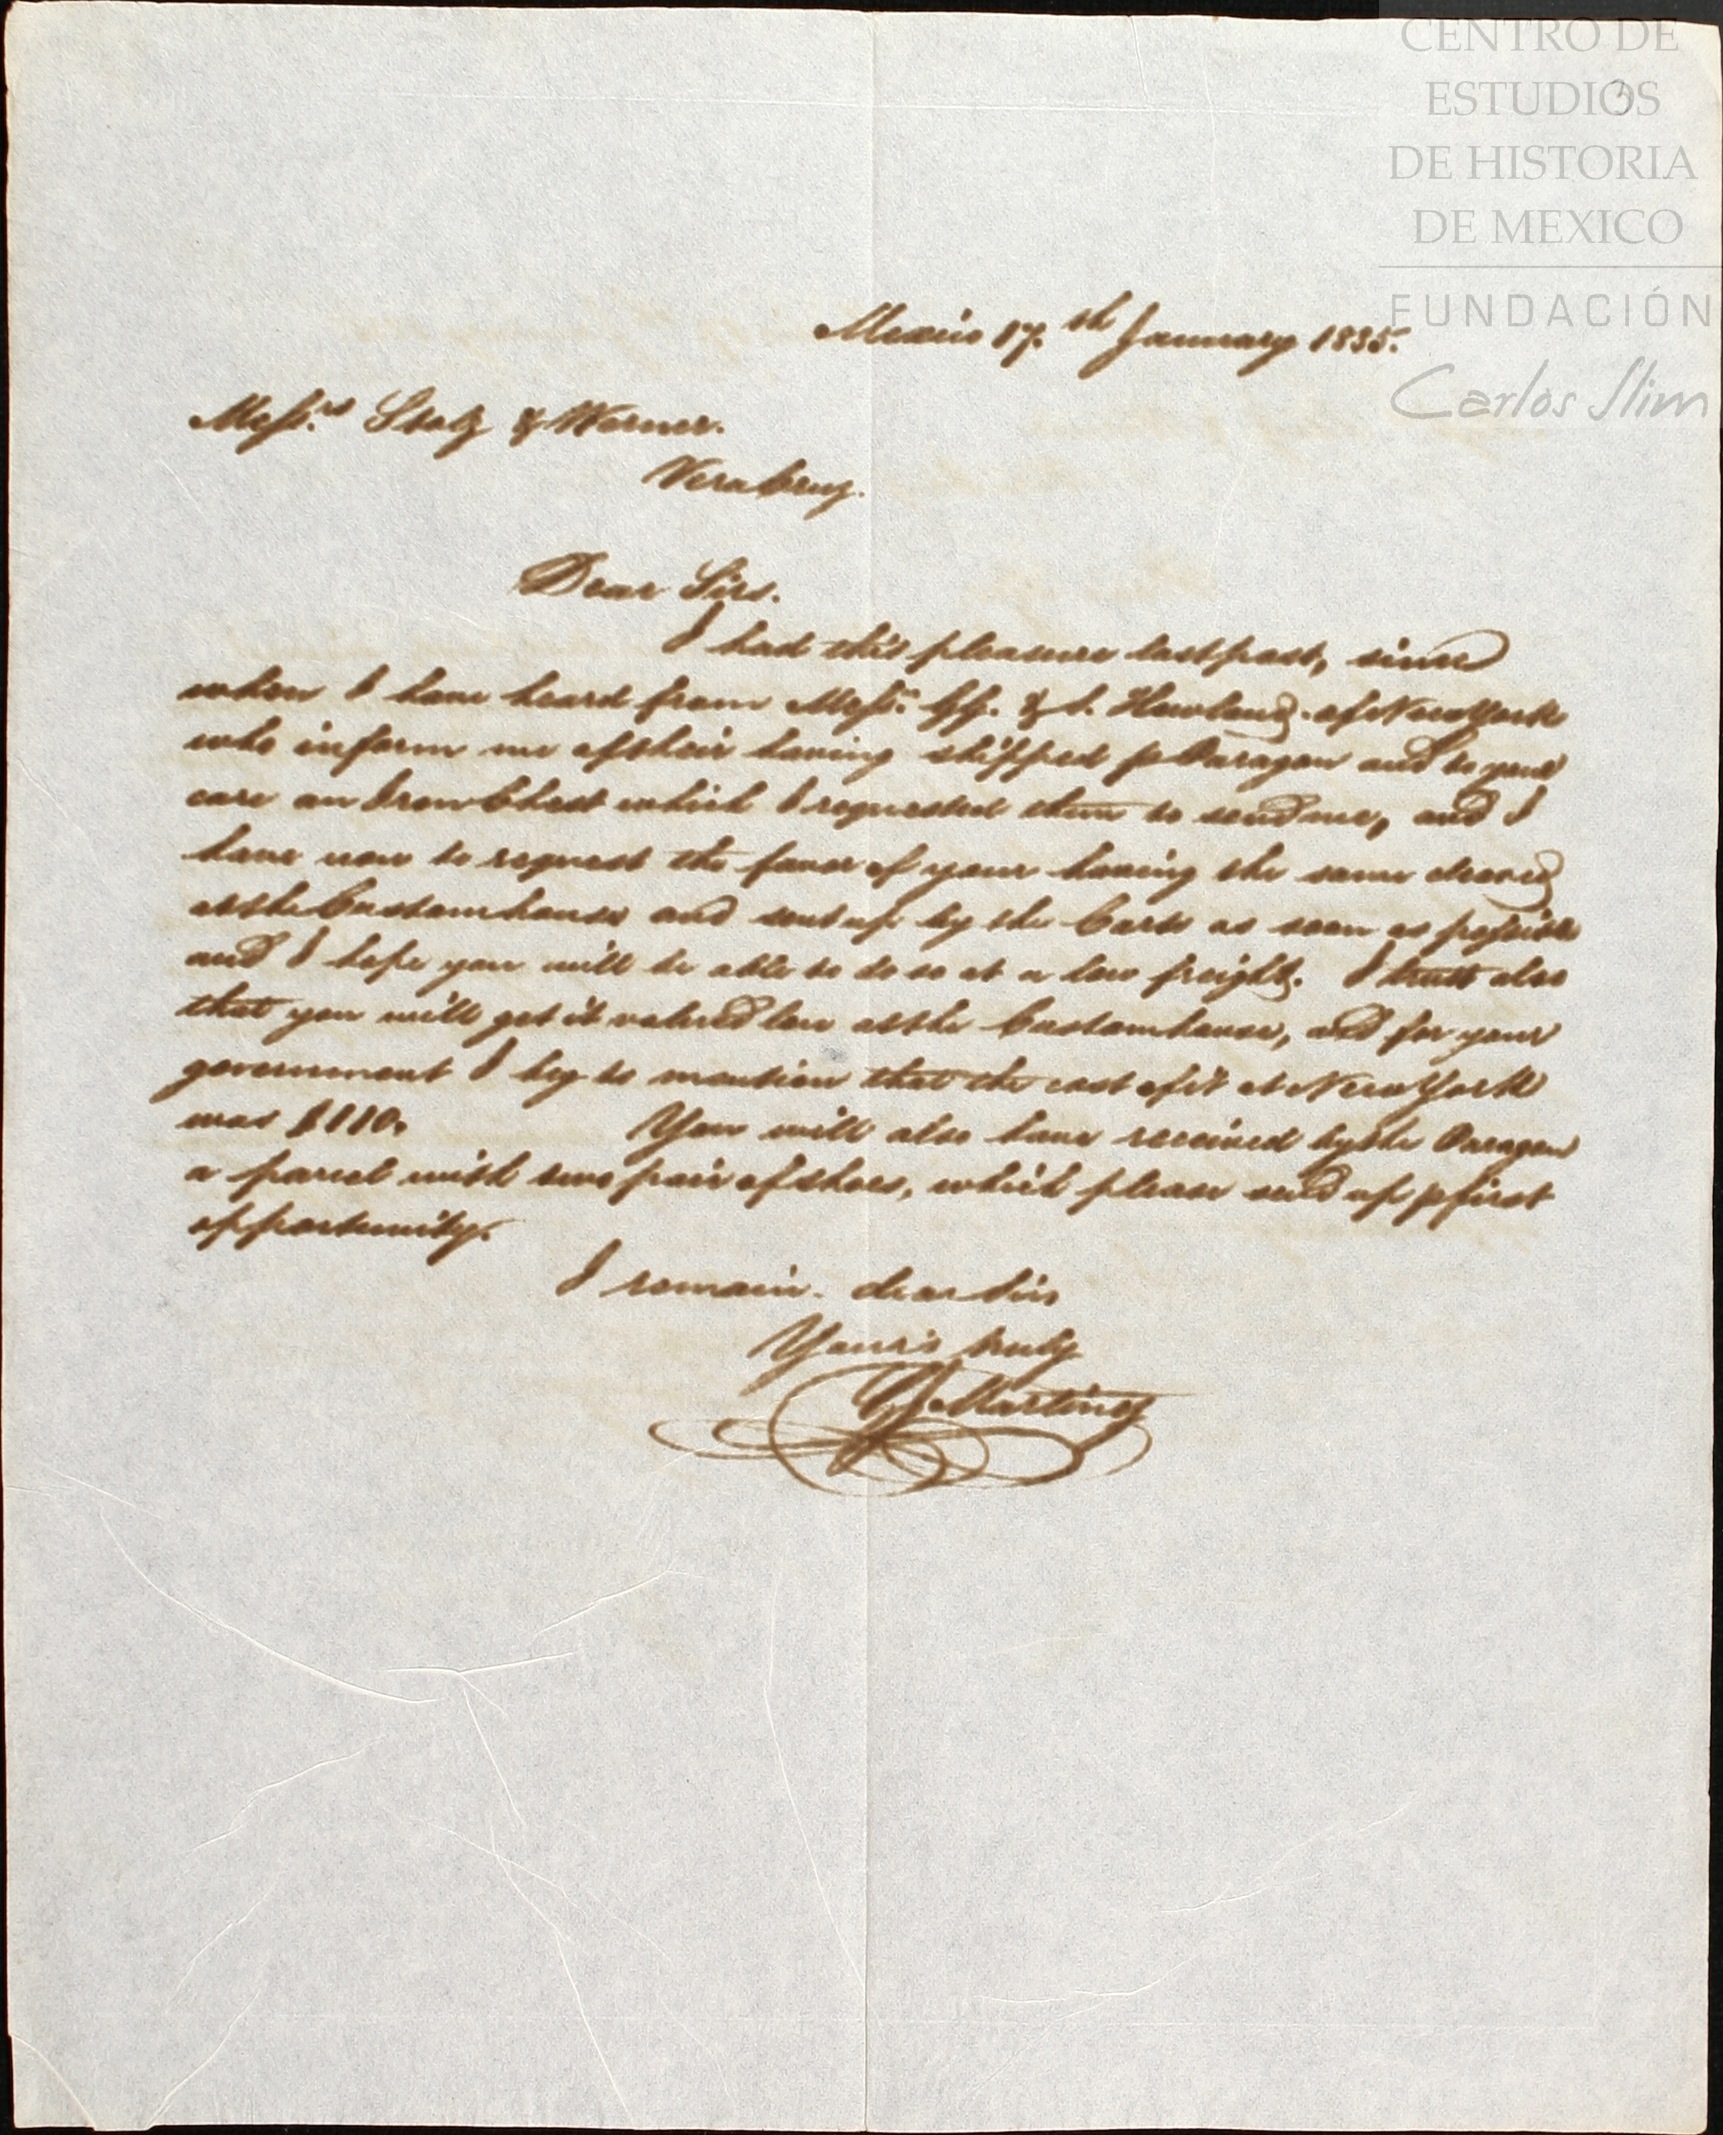 CENTRO DE
ESTUDIOS
DE HISTORIA
DE MEXICO
FUNDACIÓN
Carlos Slim
3
Mexico 17.th January 1835.
Messrs Stolz & Werner.
Vera Cruz.
Dear Sirs.
I had this pleasure last post, since
when I have heard from Messrs. GG. & S. Howland. of New York
who inform me of their having shipped p Paragon and to your
care an Iron Chest which I requested them to send me, and I
have now to request the favor of your having the same cleared
at the Customhouse and sent up by the Carts as soon as possible
and I hope you will be able to do so at a low freight. I trust also
that you will get it valued low at the Customhouse, and for your
government I beg to mention that the cost of it at New York
was $110. You will also have received by the Paragon
a parcel with two pair of shoes, which please send up p first
opportunity.
I remain. dear Sirs
Your's truly
Martinez